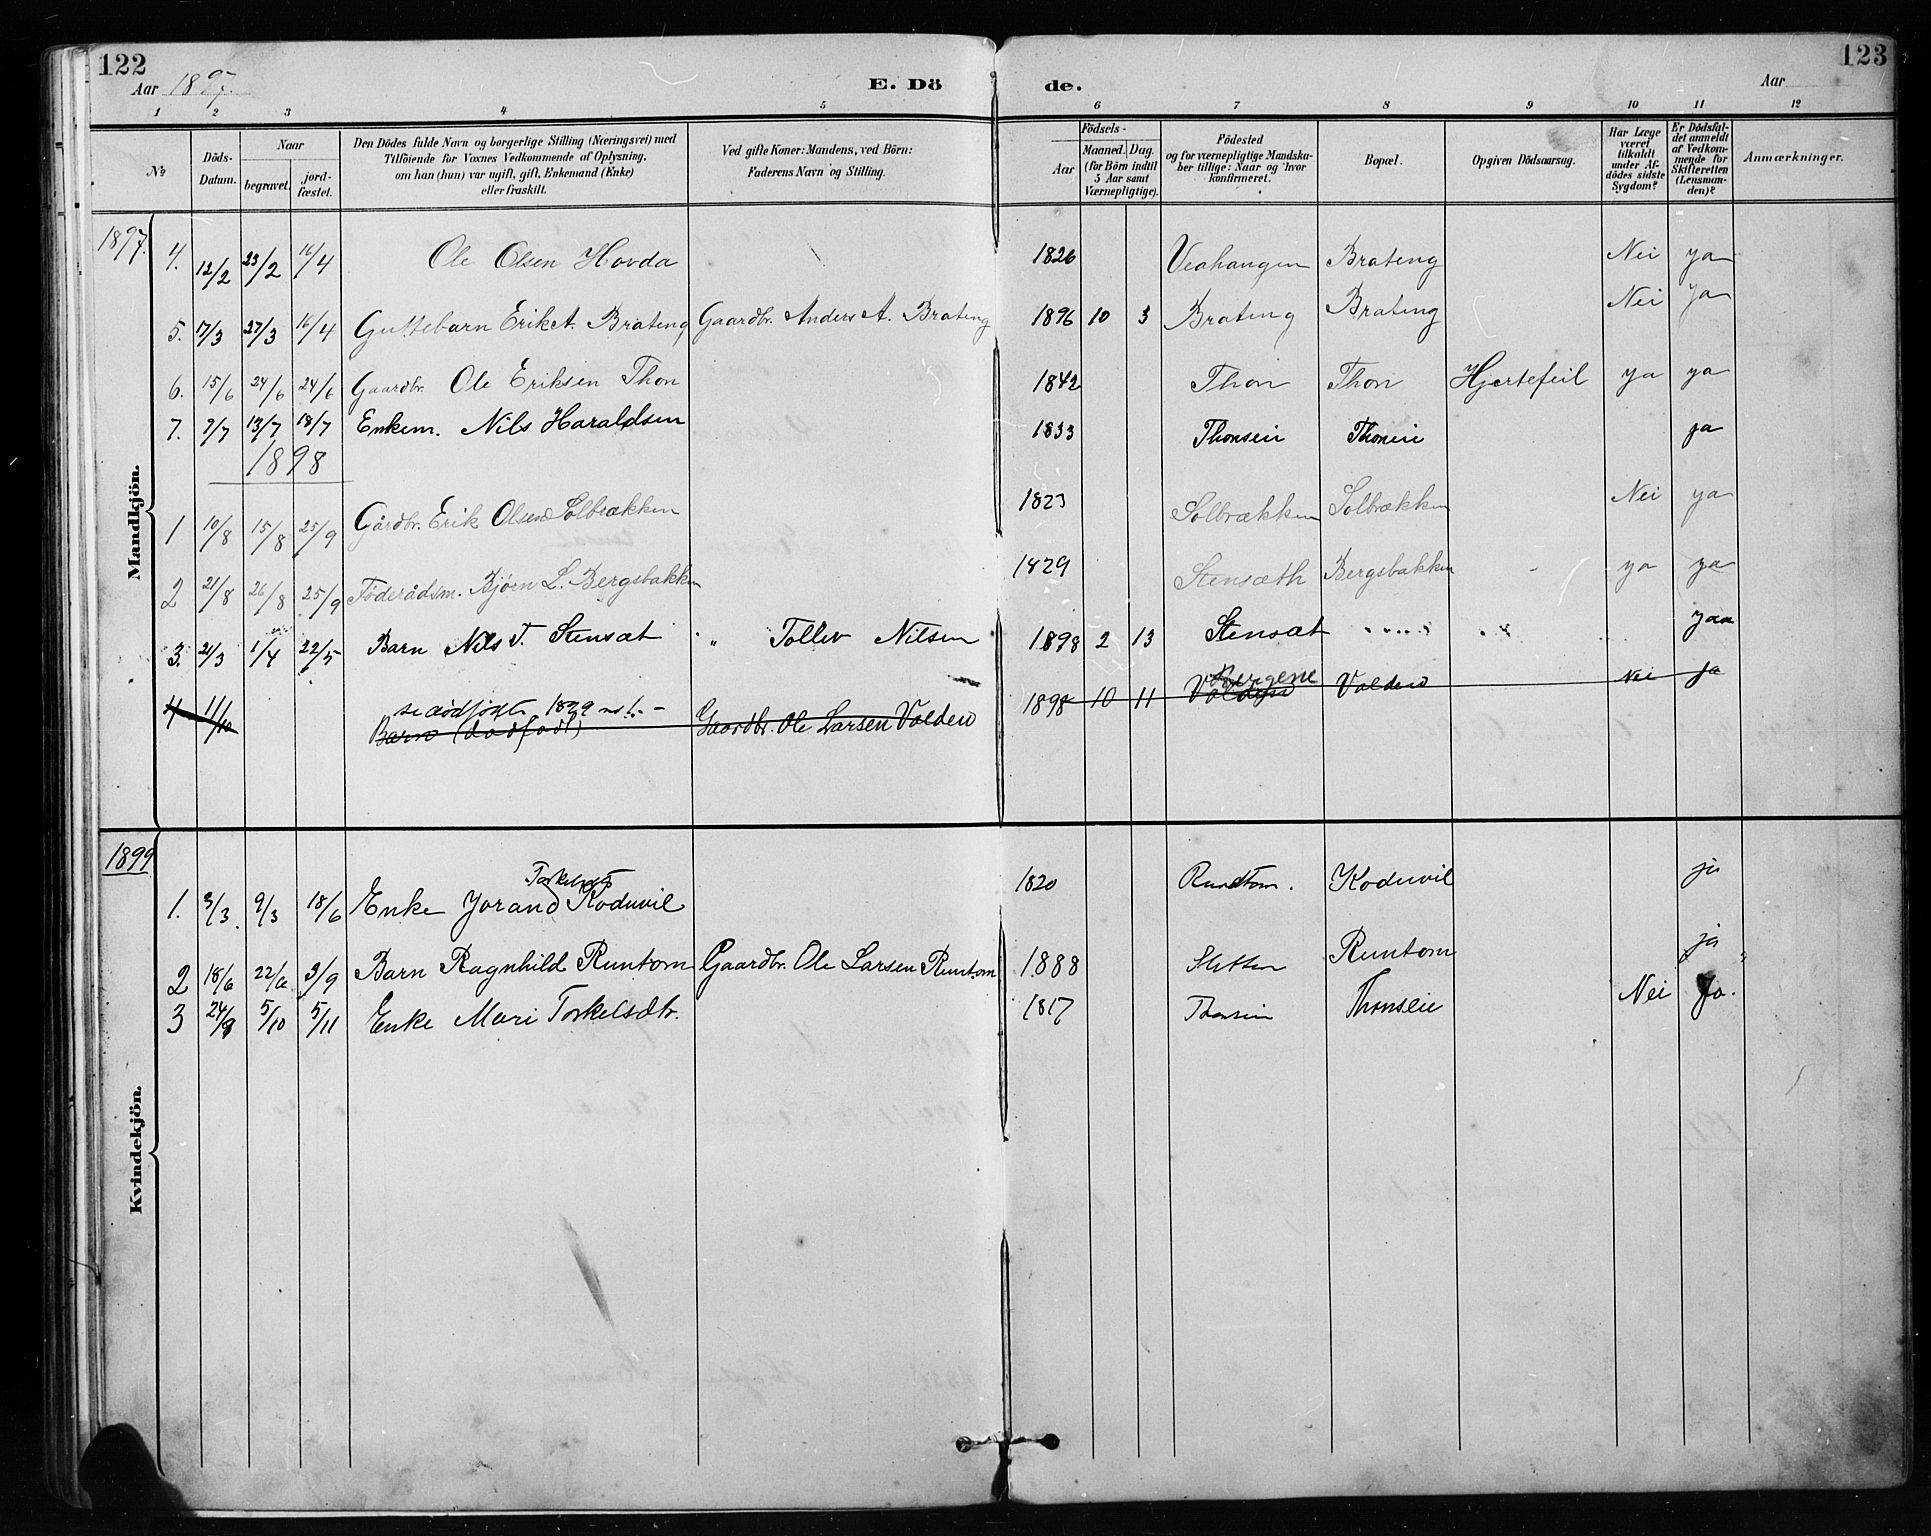 122
Aar 1897.
E. Dö
de.
Aar
123
1 2 3 4 5 6 7 8 9 10 11 12
No
Döds-Datum.
Naar
begravet.
jord-fæstet.
Den Dödes fulde Navn og borgerlige Stilling (Næringsvei) med
Tilföiende for Voxnes Vedkommende af Oplysning,
om han (hun) var ugift, gift, Enkemand (Enke)
eller fraskilt.
Ved gifte Koner: Mandens, ved Börn:
Faderens Navn og Stilling.
Födsels-
Aar
Maaned. Dag.
(for Börn indtil
5 Aar samt
Værnepligtige).
Födested
og for værnepligtige Mandska-
ber tillige: Naar og hvor
konfirmeret.
Bopæl.
Opgiven Dödsaarsag.
Har Læge
været
tilkaldt
under Af-
dödes sidste
Sygdom?
Er Dödsfal-
det anmeldt
af Vedkom-
mende for
Skifteretten
(Lensman-
den)?
Anmærkninger.
Mandkjön.
1897.
4. 12/2 23/2 16/4 Ole Olsen Hovda 1826 Veahangen Brateng Nei ja
5. 17/3 27/3 16/4 Guttebarn Erik A. Brateng Gaardbr. Anders A. Brateng 1896 10 3 Brateng Brateng Nei ja
6. 15/6 24/6 24/6 Gaardbr. Ole Eriksen Thon 1842 Thon Thon Hjertefeil ya ya
7. 9/7 13/7 18/7 Enkem. Nils Haraldsen 1833 Thonseie Thoneie ja
1898
1 10/8 15/8 25/9 Gårdbr. Erik Olsen Solbrækken 1823 Solbrækken Solbrækken Nei ya
2 21/8 26/8 25/9 Föderådsm. Bjørn L. Bergsbakken 1829 Stensæth Bergsbakken - ya ya
3. 21/3 1/4 22/5 Barn Nils T. Stensæt " Tollev Nilsen 1898 2 13 Stensæt yaa
se dødfødte 1899
Bergene
4 11/10 Barn (dødfødt) Gaardbr. Ole Larsen Volden 1898 10 11 Volden Volden Nei Ja
Kvindekjön.
1899
Torkelsdt
1. 3/3. 9/3 18/6 Enke Jorand Roduvil 1820 Rundtom. Koduvil ja
2 18/6 22/6 3/9 Barn Ragnhild Runtom Gaardbr. Ole Larsen Runtom 1888 Sletten Runtom ja
3 24/9 5/10 5/11 Enke Mari Torkelsdtr. 1817 Thonseie Thonseie Nei Ja.